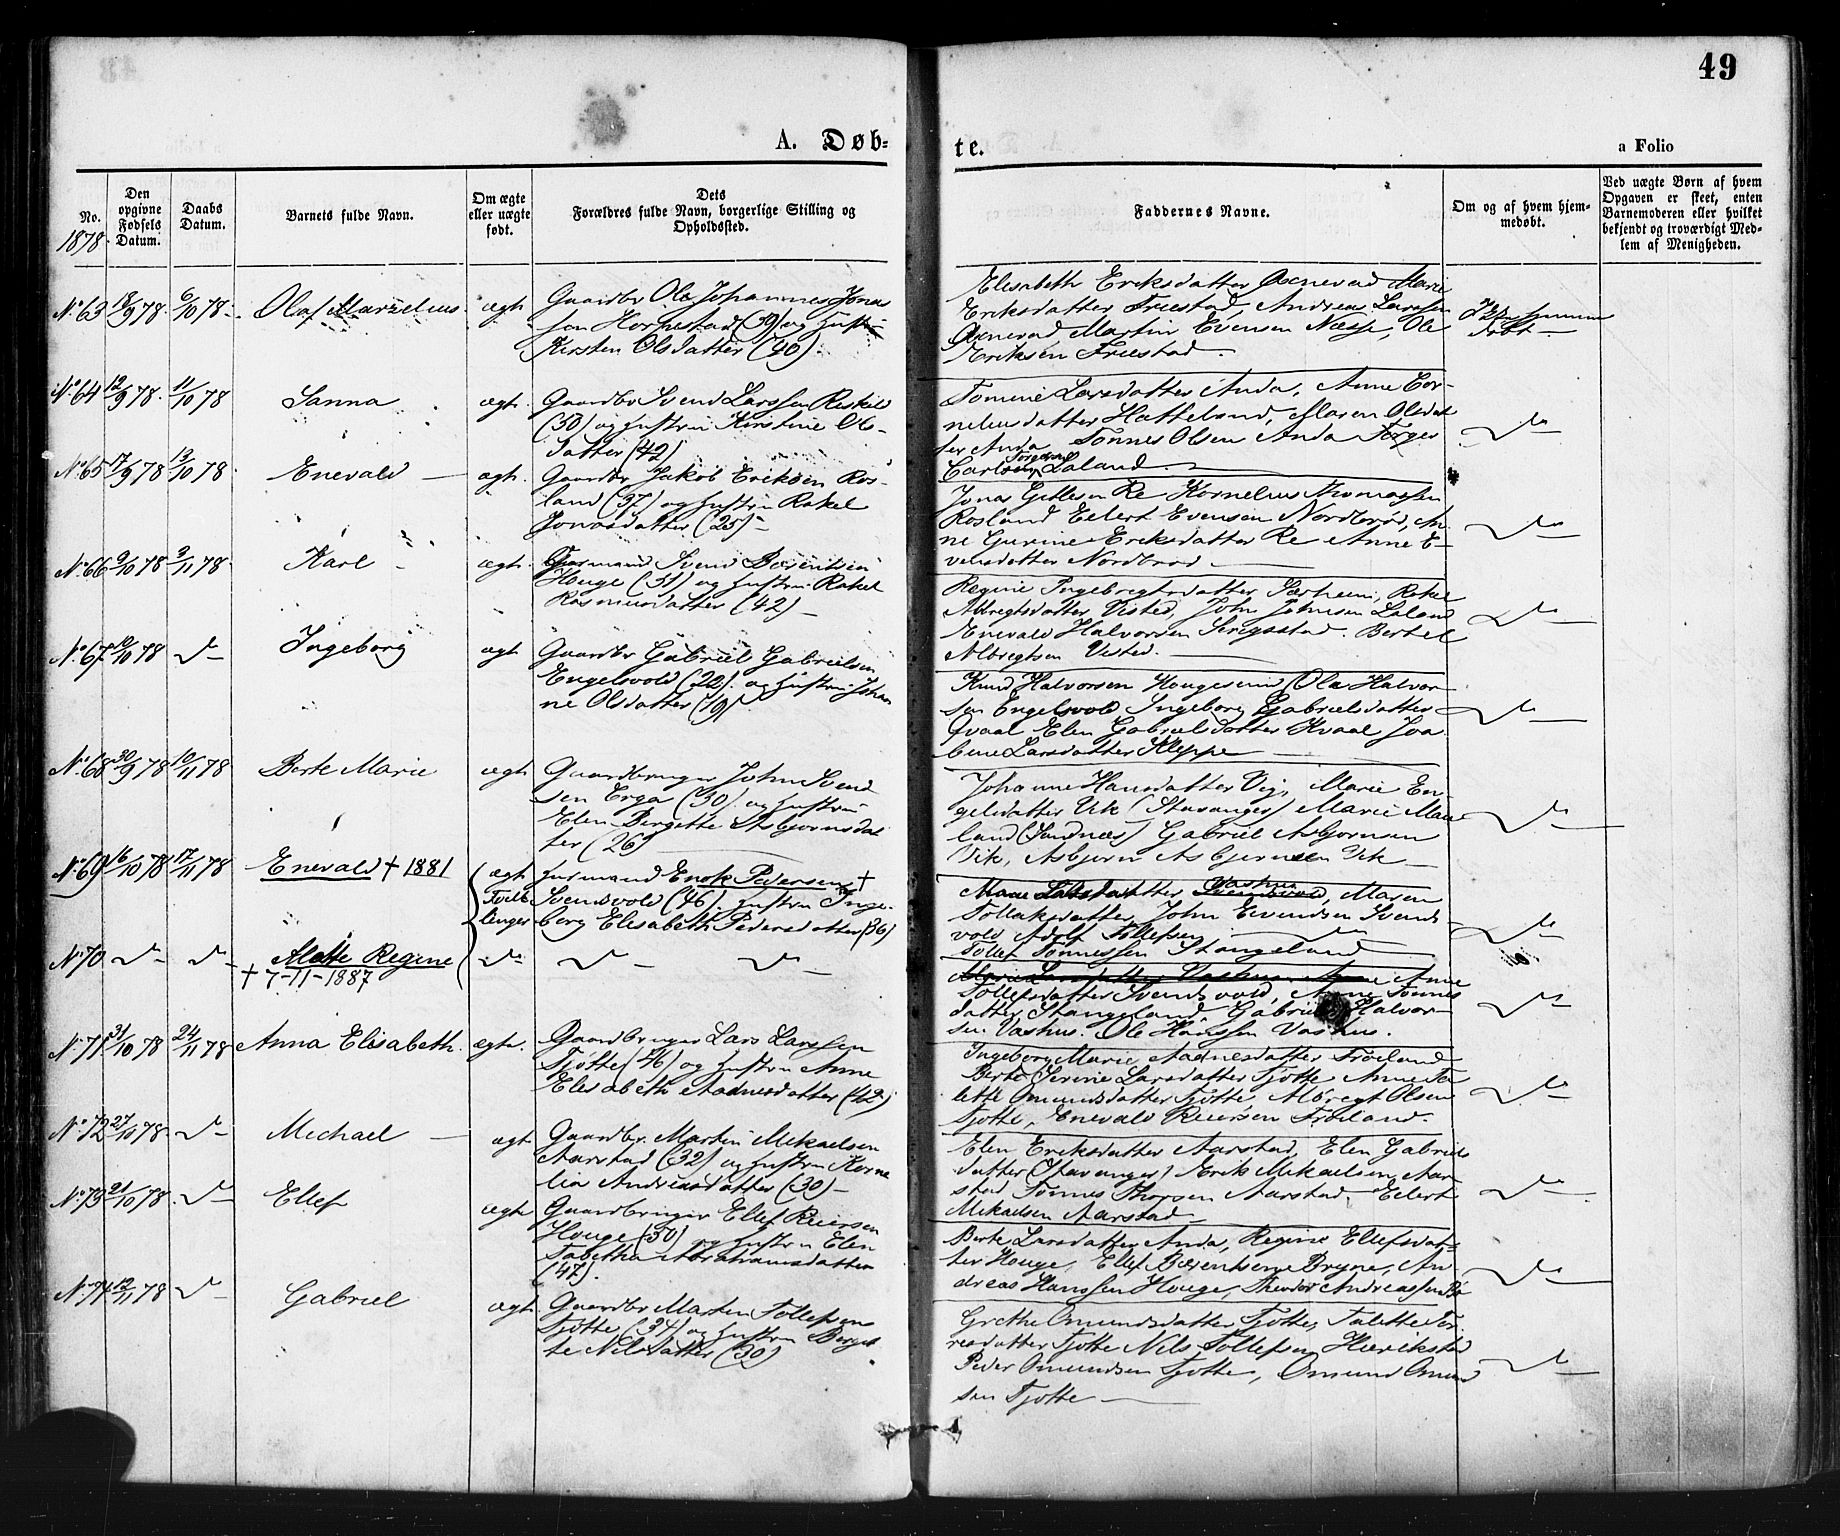 49
A. Døb-
te.
a Folio
No.
1878
Den opgivne Fødsels Datum.
Daabs Datum.
Barnets fulde Navn.
Om ægte eller uægte født.
Dets
Forældres fulde Navn, borgerlige Stilling og
Opholdssted.
Faddernes Navne.
Om og af hvem hjem-
medøbt.
Ved uægte Børn af hvem
Opgaven er skeet, enten
Barnemoderen eller hvilket
bekjendt og troværdigt Med-
lem af Menigheden.
No 63 18/9 78. 6/10 78. Olaf Marselius ægt. Gaardbr Ole Johannes Jonas
sen Hognestad (39) og Hustru
Kirsten Olsdatter (40).
Elisabeth Eriksdatter Oxnevad Marie
Eriksdatter Friestad, Andreas Larssen
Oxnevad, Martin Evensen Næsse, Ole
Eriksen Friestad.
Ikke hjemme
døbt
No 64 12/9 78. 11/10 78 Sanna ægt. Gaardbr Svend Larssen Reskild
(30) og Hustru Kirstine Ols-
datter (42)
Tomine Larsdatter Anda, Anne Cor-
neliusdatter Hatteland, Maren Olsdat
ter Anda Tønnes Olsen Anda Torger
Torgersen
Carlsen Laland.
No 65 17/9 78 13/10 78 Enevald ægt. Gaardbr Jakob Eriksen Ros-
land (37) og Hustru Rakel
Jonasdatter (25)
Jonas Gitlesen Re Kornelius Thomassen
Rosland Eilert Evensen Nordbrød, An
ne Gurine Eriksdatter Re Anne E-
vensdatter Nordbrød
No 66 9/10 78 3/11 78. Karl ægt. Husmand Svend Børentsen
Houge (31) og Hustru Rakel
Rasmusdatter (42)
Regine Ingebrigtsdatter Særheim, Rakel
Albregtsdatter Visted, John Johnsen Laland
Enevald Halvorsen Serigstad. Bertel
Albregtsen Visted.
No 67 12/10 78 Ingeborg ægt Gaardbr Gabriel Gabrielsen
Engelsvold (22). og Hustru Johan
ne Olsdatter (19)
Knud Halvorsen Hougesund Ola Halvor
sen Engelsvold Ingeborg Gabrielsdatter
Qvaal Elen Gabrielsdatter Kvaal Joa
bine Larsdatter Kleppe
No 68 30/9 78 10/11 78 Berte Marie ægt Gaardbruger John Svend
sen Erga (30) og Hustru
Elen Bergitte Asbjørnsdat
ter (26)
Johanne Hansdatter Vig, Marie En
gelsdatter Vik (Stavanger) Marie Mau
land (Sandnes) Gabriel Asbjørnsen
Vik, Asbjørn Asbjørnsen Vik
No 69 16/10 78 17/11 78 Enevald † 1881 ægt Husmand Enok Pedersen †
Tvil Svendsvold (46). Hustru Inge-
linger borg Elisabeth Pedersdatter (36)
Marie Larsdatter Vashus, Maren
Tollaksdatter John Evendsen Svends
vold Adolf Tollefsen
Tollef Tønnessen Stangeland
No 70 Alette Regine
† 7-11-1887
Anne
Tollefsdatter Svendsvold, Anne Tønnes
datter Stangeland Gabriel Halvor-
sen Vashus. Ole Hanssen Vashus.
No 71 31/10 78 24/11 78 Anna Elisabeth. ægte. Gaardbruger Lars Larssen
Tjøtte (46) og Hustru Anne
Elisabeth Aadnesdatter (42)
Ingeborg Marie Aadnesdatter Frøiland
Berte Serine Larsdatter Tjøtte Anne Ta
lette Omundsdatter Tjøtte Albregt Olsen
Tjøtte, Enevald Reiersen Frøiland.
No 72 27/10 78. Michael ægt Gaardbr. Martin Mikaelsen
Aarstad (32) og Hustru Korne
lia Andreasdatter (30)
Elen Eriksdatter Aarstad, Elen Gabriels
datter (Stavanger) Erik Mikaelsen Aar
stad Tønnes Thorsen Aarstad. Eilert
Mikaelsen Aarstad
No 73 21/10 78. Ellef ægt Gaardbruger Ellef Reiersen
Houge (30) og Hustru Elen
Tabitha Abrahamsdatter
(47).
Berte Larsdatter Anda, Regine Ellefsdat-
ter Houge, Ellef Børentsen Bryne, An
dreas Hanssen Houge, Theodor Andreassen Bø
No 74 12/11 78 Gabriel ægt Gaardbr Morten Tollefsen
Tjøtte (34) og Hustru Berget
te Nilsdatter (30)
Grethe Omundsdatter Tjøtte, Talette Tor
resdatter Tjøtte Nils Tollefsen Herikstad
Peder Omundsen Tjøtte, Omund Omund
sen Tjøtte